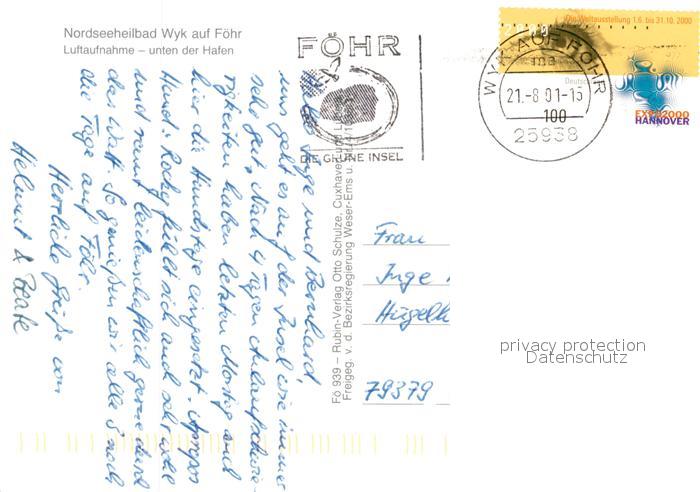 Nordseeheilbad Wyk auf Föhr
Luftaufnahme – unten der Hafen
FÖHR
DIE GRÜNE INSEL
2000
Die Weltausstellung 1.6. bis 31.10. 2000
Deutsch
EXPO2000
HANNOVER
WYK AUF FÖHR
mc
21.-8.01-15
100
25938
Liebe Inge und Bernhard,
uns geht es auf der Insel wie immer
sehr gut. Nach 4 Tagen Anlaufschwie-
rigkeiten haben letzten Montag auch
hier die Hundstage eingesetzt. Apropos
Hund: Rocky fühlt sich auch sehr wohl
und rennt leidenschaftlich gerne durch
das Watt. So genießen wir alle 3 noch
die Tage auf Föhr.
Herzliche Grüße von
Helmut & Beate
Fö 939 – Rubin-Verlag Otto Schulze, Cuxhaven und
Freigeg. v. d. Bezirksregierung Weser-Ems u.
Frau
Inge
Hügelh
79379
privacy protection
Datenschutz